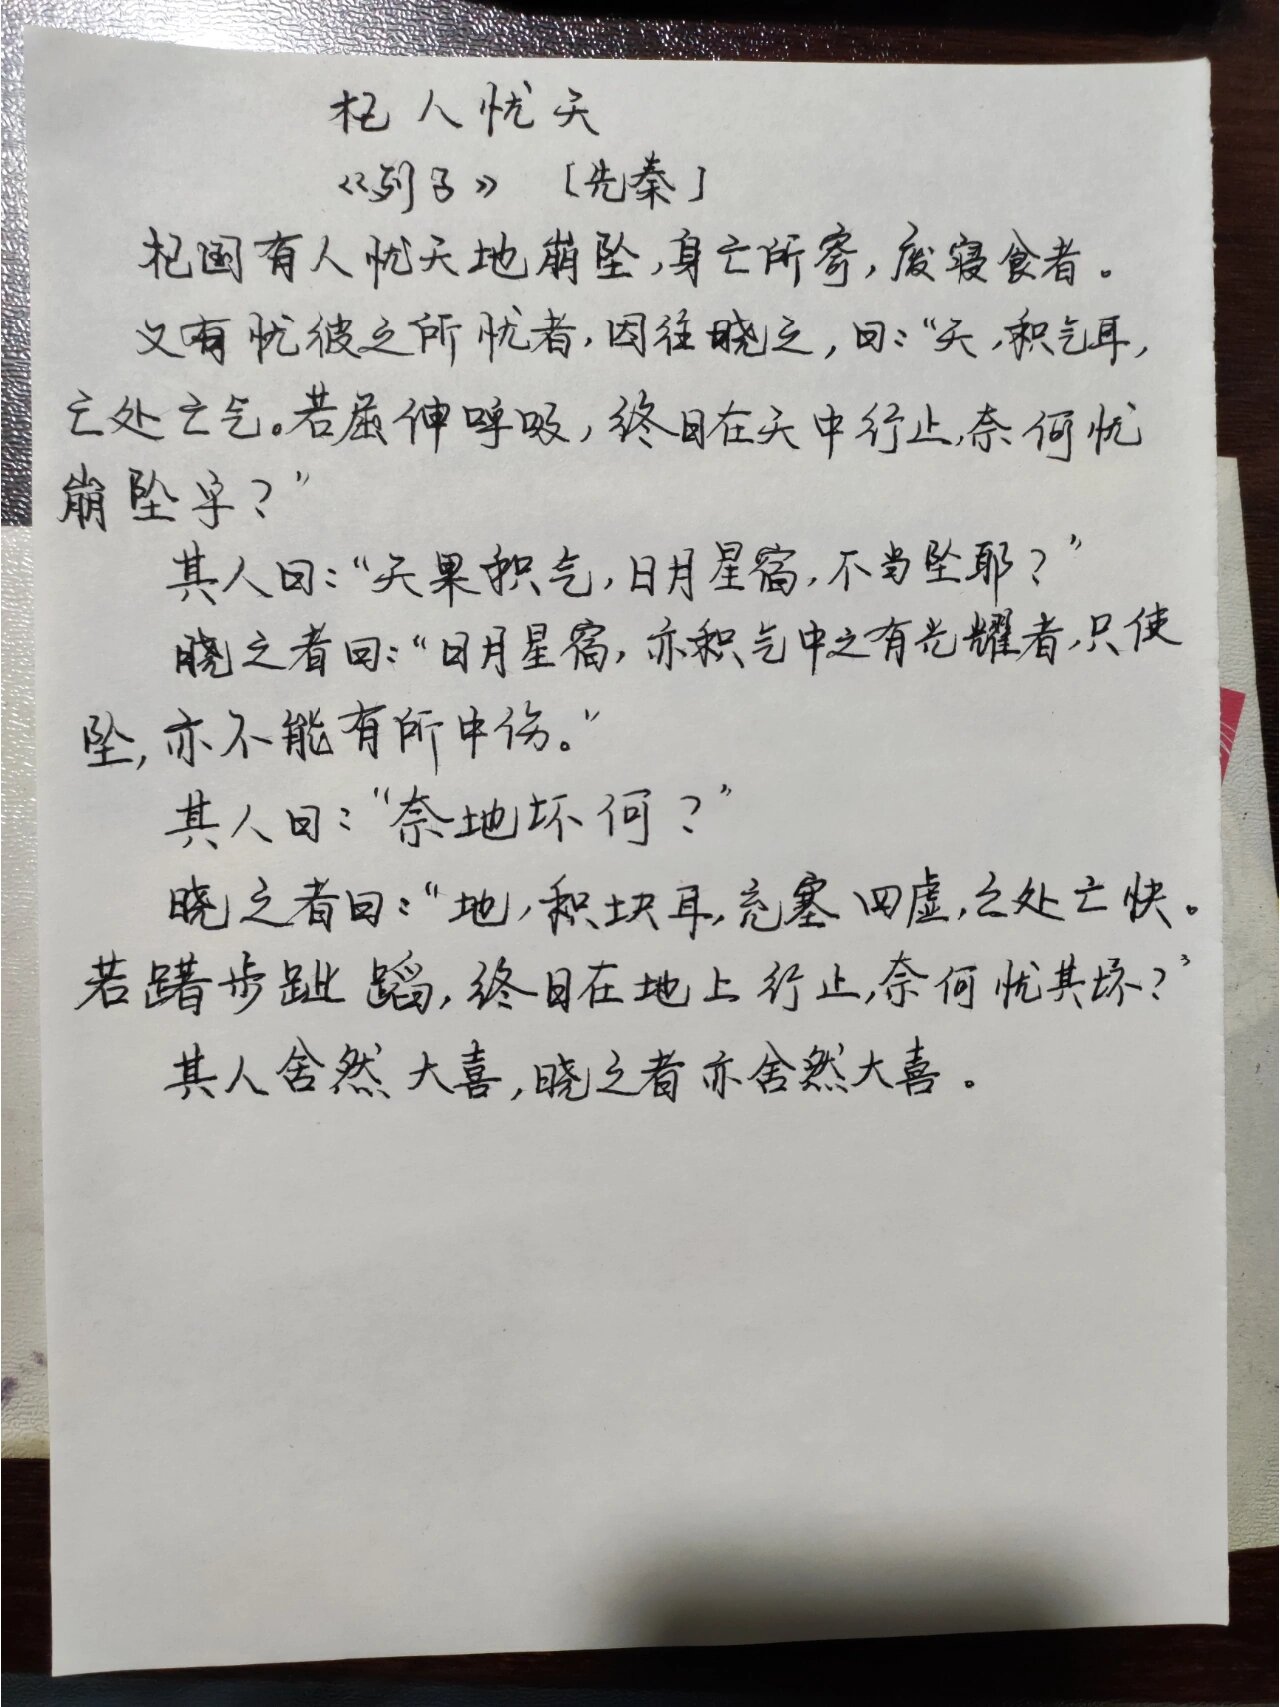 杞人忧天
《列子》 [先秦]
杞国有人忧天地崩坠,身亡所寄,废寝食者。
又有忧彼之所忧者,因往晓之,曰:“天,积气耳,
亡处亡气。若屈伸呼吸,终日在天中行止,奈何忧
崩坠乎?”
其人曰:“天果积气,日月星宿,不当坠耶?”
晓之者曰:“日月星宿,亦积气中之有光耀者,只使
坠,亦不能有所中伤。”
其人曰:“奈地坏何?”
晓之者曰:“地,积块耳,充塞四虚,亡处亡快。
若躇步跐蹈,终日在地上行止,奈何忧其坏?”
其人舍然大喜,晓之者亦舍然大喜。